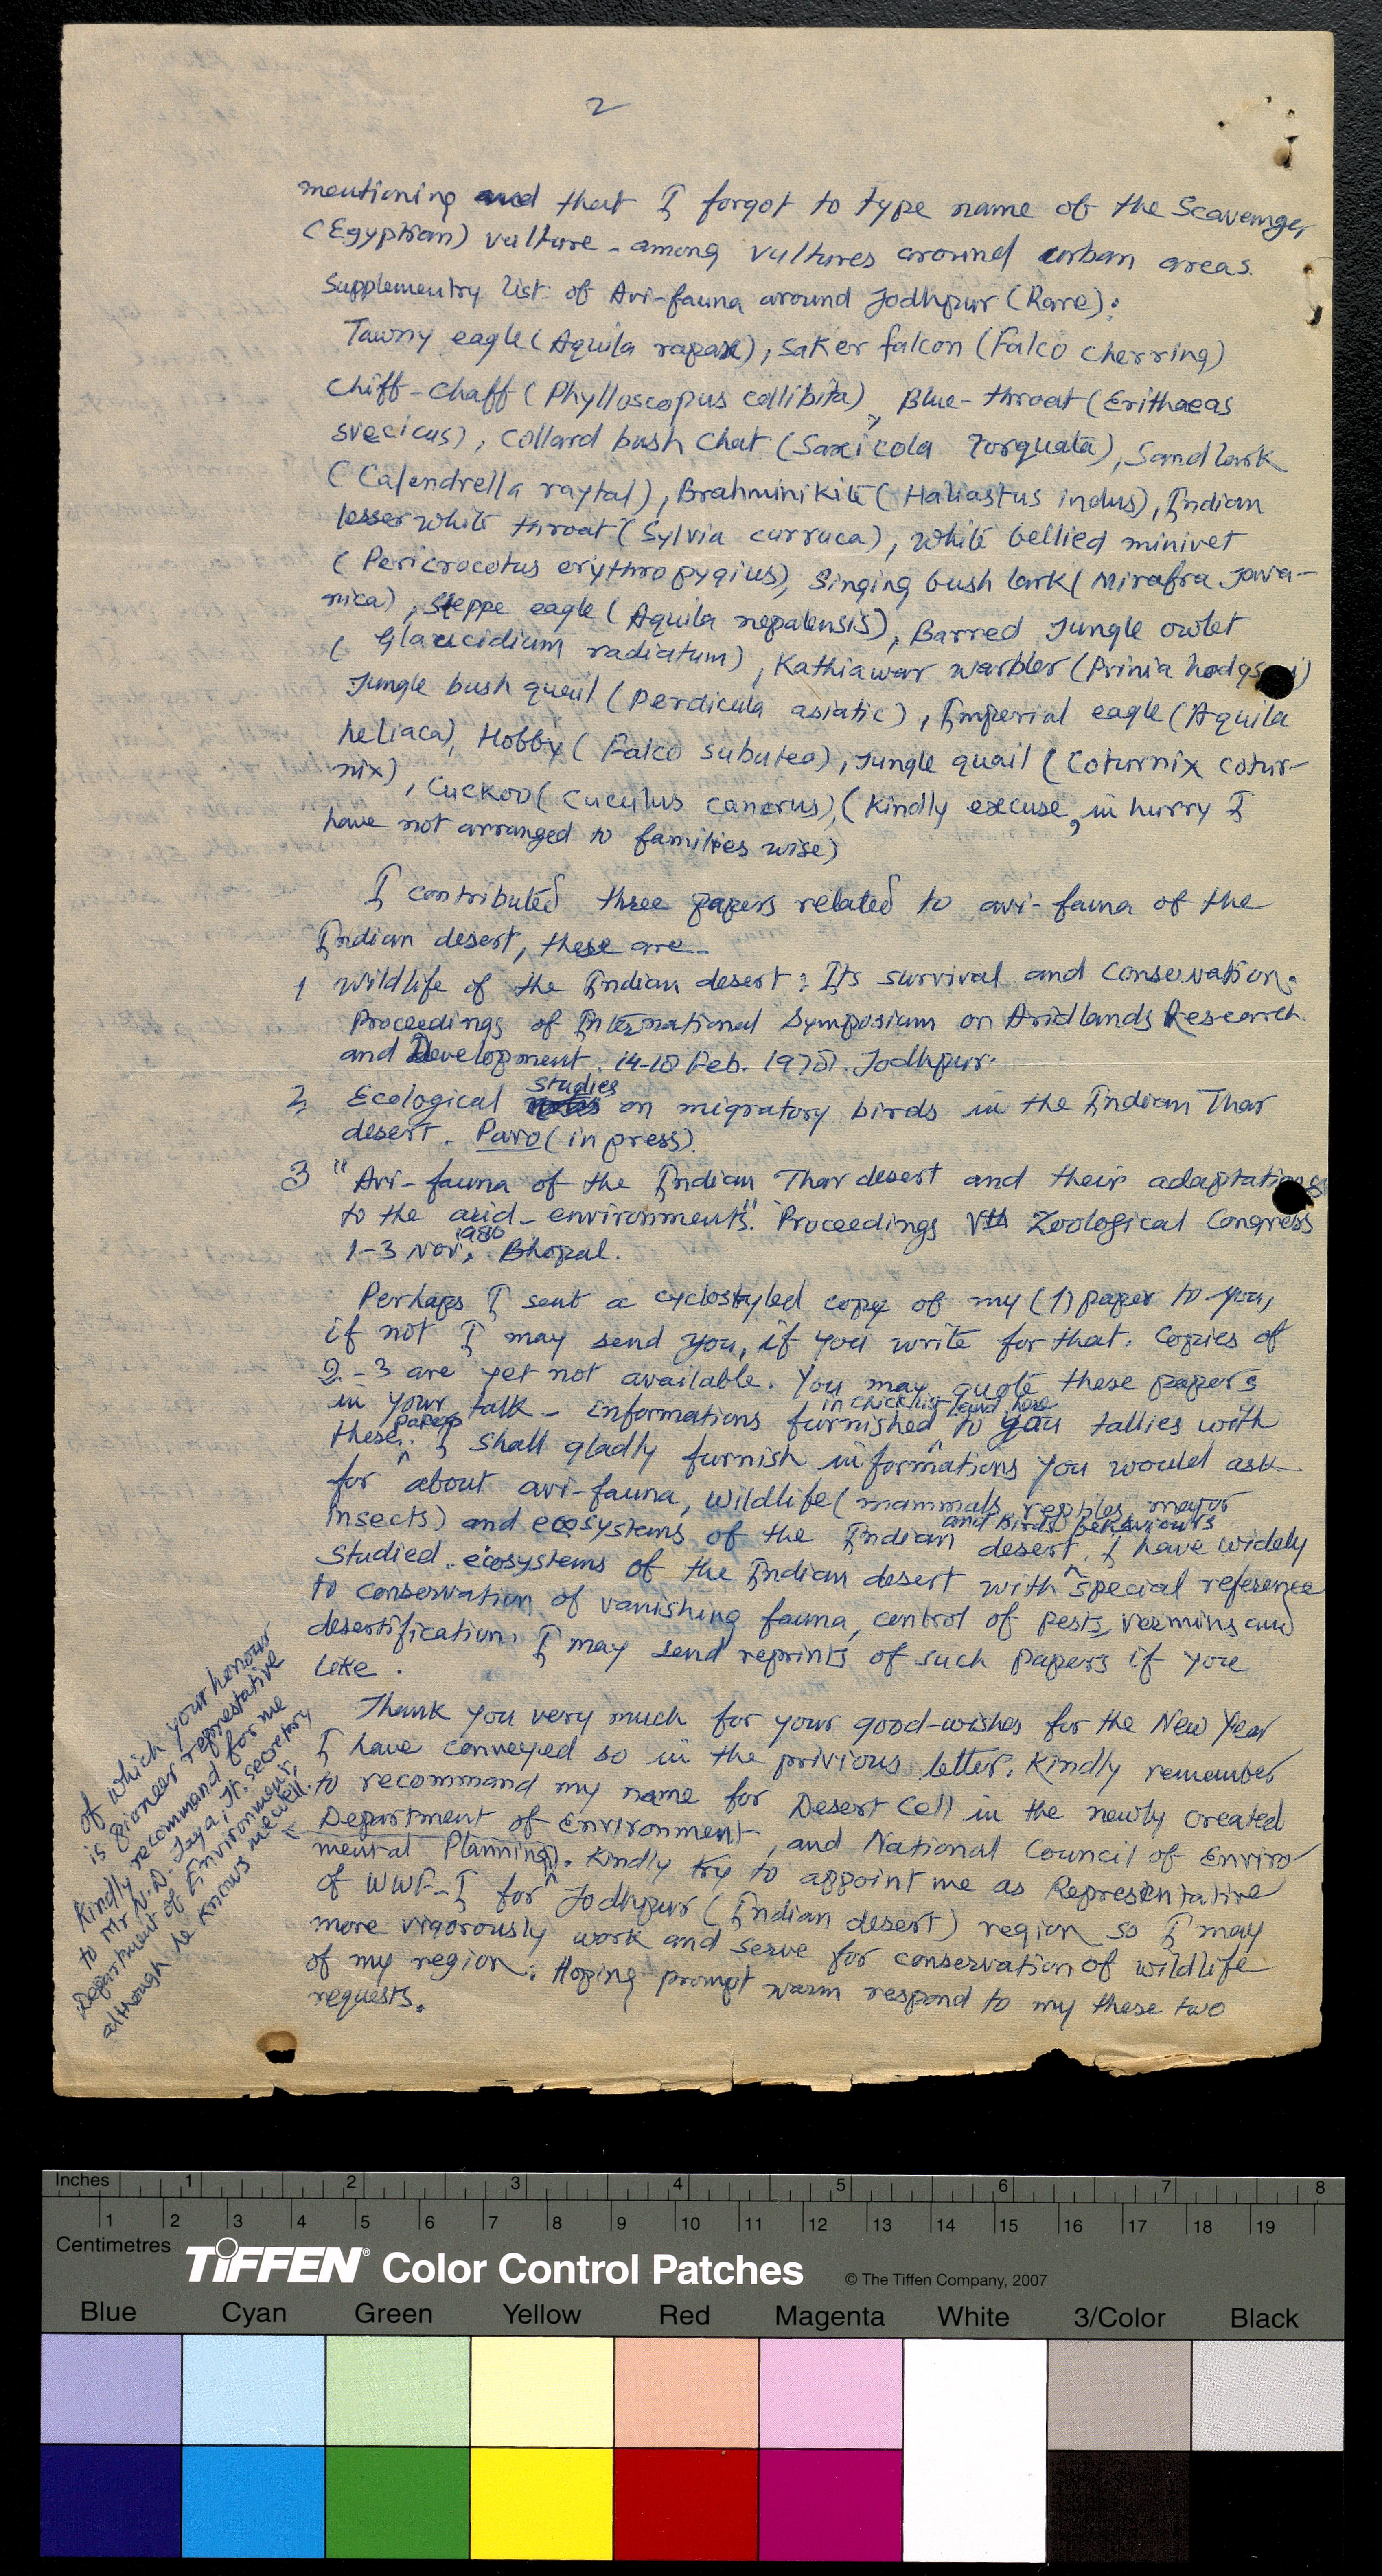 2
mentioning and that I forgot to type name of the Scavenger
(Egyptian) vulture - among vultures around urban areas.
Supplementry list of Avi-fauna around Jodhpur (Rare):
Tawny eagle (Aquila rapax), Saker falcon (Falco cherring)
Chiff-chaff (Phylloscopus collibita), Blue-throat (Erithaeas
svecicus), Collard bush Chat (Saxicola Torquata), Sand lark
(Calendrella raytal), Brahmini Kite (Haliastus indus), Indian
lesser white throat (Sylvia curruca), White bellied minivet
(Pericrocotus erythropygius), Singing bush lark (Mirafra Java-
nica), Steppe eagle (Aquila nepalensis), Barred Jungle owlet
(Glaucidium radiatum), Kathiawar warbler (Prinia
Jungle bush quail (Perdicula asiatic), Imperial eagle (Aquila
heliaca), Hobby (Falco subuteo), Jungle quail (Coturnix cotur-
nix), Cuckoo (Cuculus canorus), (Kindly excuse, in hurry I
have not arranged to families wise)
I contributed three papers related to avi-fauna of the
Indian desert, these are-
1 Wildlife of the Indian desert: Its survival and Conservation.
Proceedings of International Symposium on Aridlands Research
and Development. 14-18 Feb. Jodhpur.
2, Ecological studies on migratory birds in the Indian Thar
desert. Pavo (in press).
3 "Avi-fauna of the Indian Thar desert and their adaptations
to the arid-environments." Proceedings Vth Zoological Congress
1-3 Nov, 1980 Bhopal.
Perhaps I sent a cyclostyled copy of my (1) paper to you,
if not I may send you, if you write for that. Copies of
2-3 are yet not available. You may quote these papers
in your talk - informations furnished in checklist and here to you tallies with
these papers. I shall gladly furnish informations you would ask
for about avi-fauna, wildlife (mammals, reptiles, major
insects) and ecosystems of the Indian desert. I have widely
and birds behaviours
studied ecosystems of the Indian desert with special reference
to conservation of vanishing fauna, control of pests, vermins and
desertification. I may send reprints of such papers if you
like.
Thank you very much for your good-wishes for the New Year
I have conveyed so in the privious letter. Kindly remember
to recommand my name for Desert Cell in the newly created
Department of Environment, and National Council of Enviro-
mental Planning. Kindly try to appoint me as Representative
of WWF-I for Jodhpur (Indian desert) region so I may
more vigorously work and serve for conservation of wildlife
of my region. Hoping prompt warm respond to my these two
requests.
of which your honour
is pioneer representative
Kindly recommand for me
to Mr N.D. Jaya, Jt. secretary
Department of Environment,
although he knows me well.
Inches 1 2 3 4 5 6 7 8
1 2 3 4 5 6 7 8 9 10 11 12 13 14 15 16 17 18 19
Centimetres
TIFFEN® Color Control Patches © The Tiffen Company, 2007
Blue Cyan Green Yellow Red Magenta White 3/Color Black